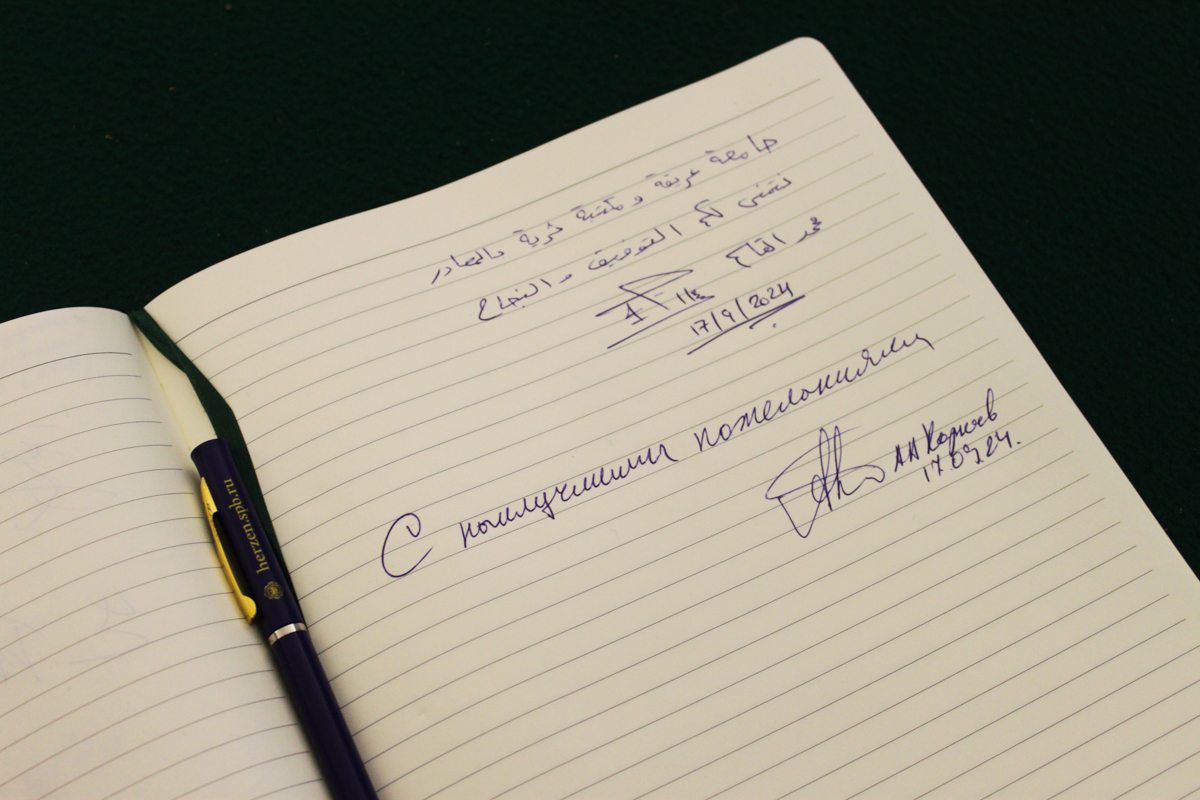 جامعة عريقة ومكتبة ثرية بالمصادر
نتمنى لكم التوفيق والنجاح
محمد
17/9/2024
С наилучшими пожеланиями
АА Карпов
17.09.24.
herzen.spb.ru